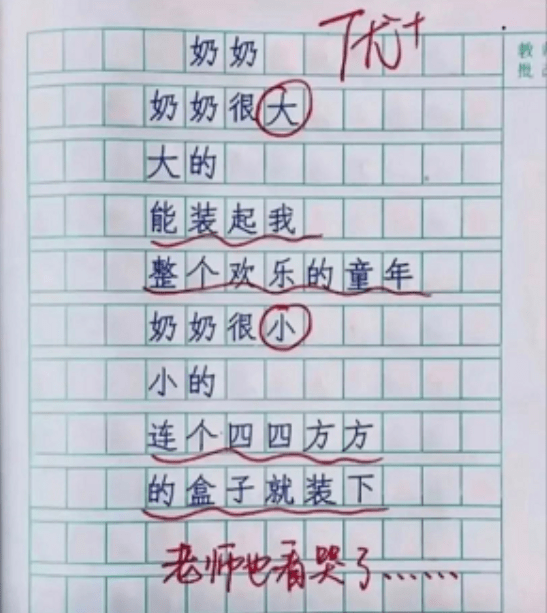 优+
奶奶
奶奶很大
大的
能装起我
整个欢乐的童年
奶奶很小
小的
连个四四方方
的盒子就装下
老师也看哭了......
教
批